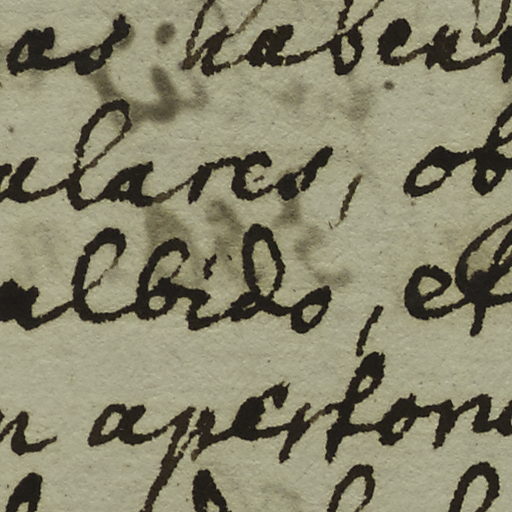 as haben
alares, ob
albido, et
n apertona